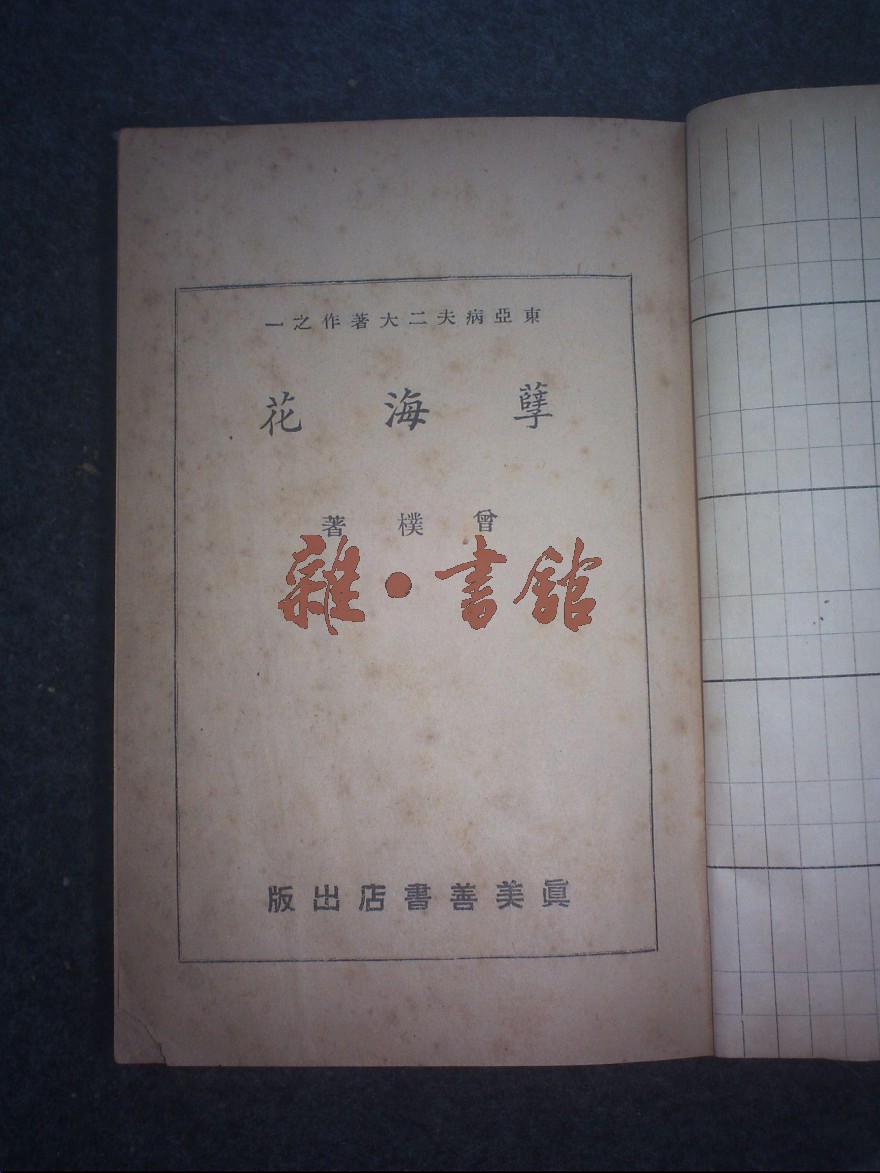 東亞病夫二大著作之一
孽海花
曾樸著
雜·書館
眞美善書店出版